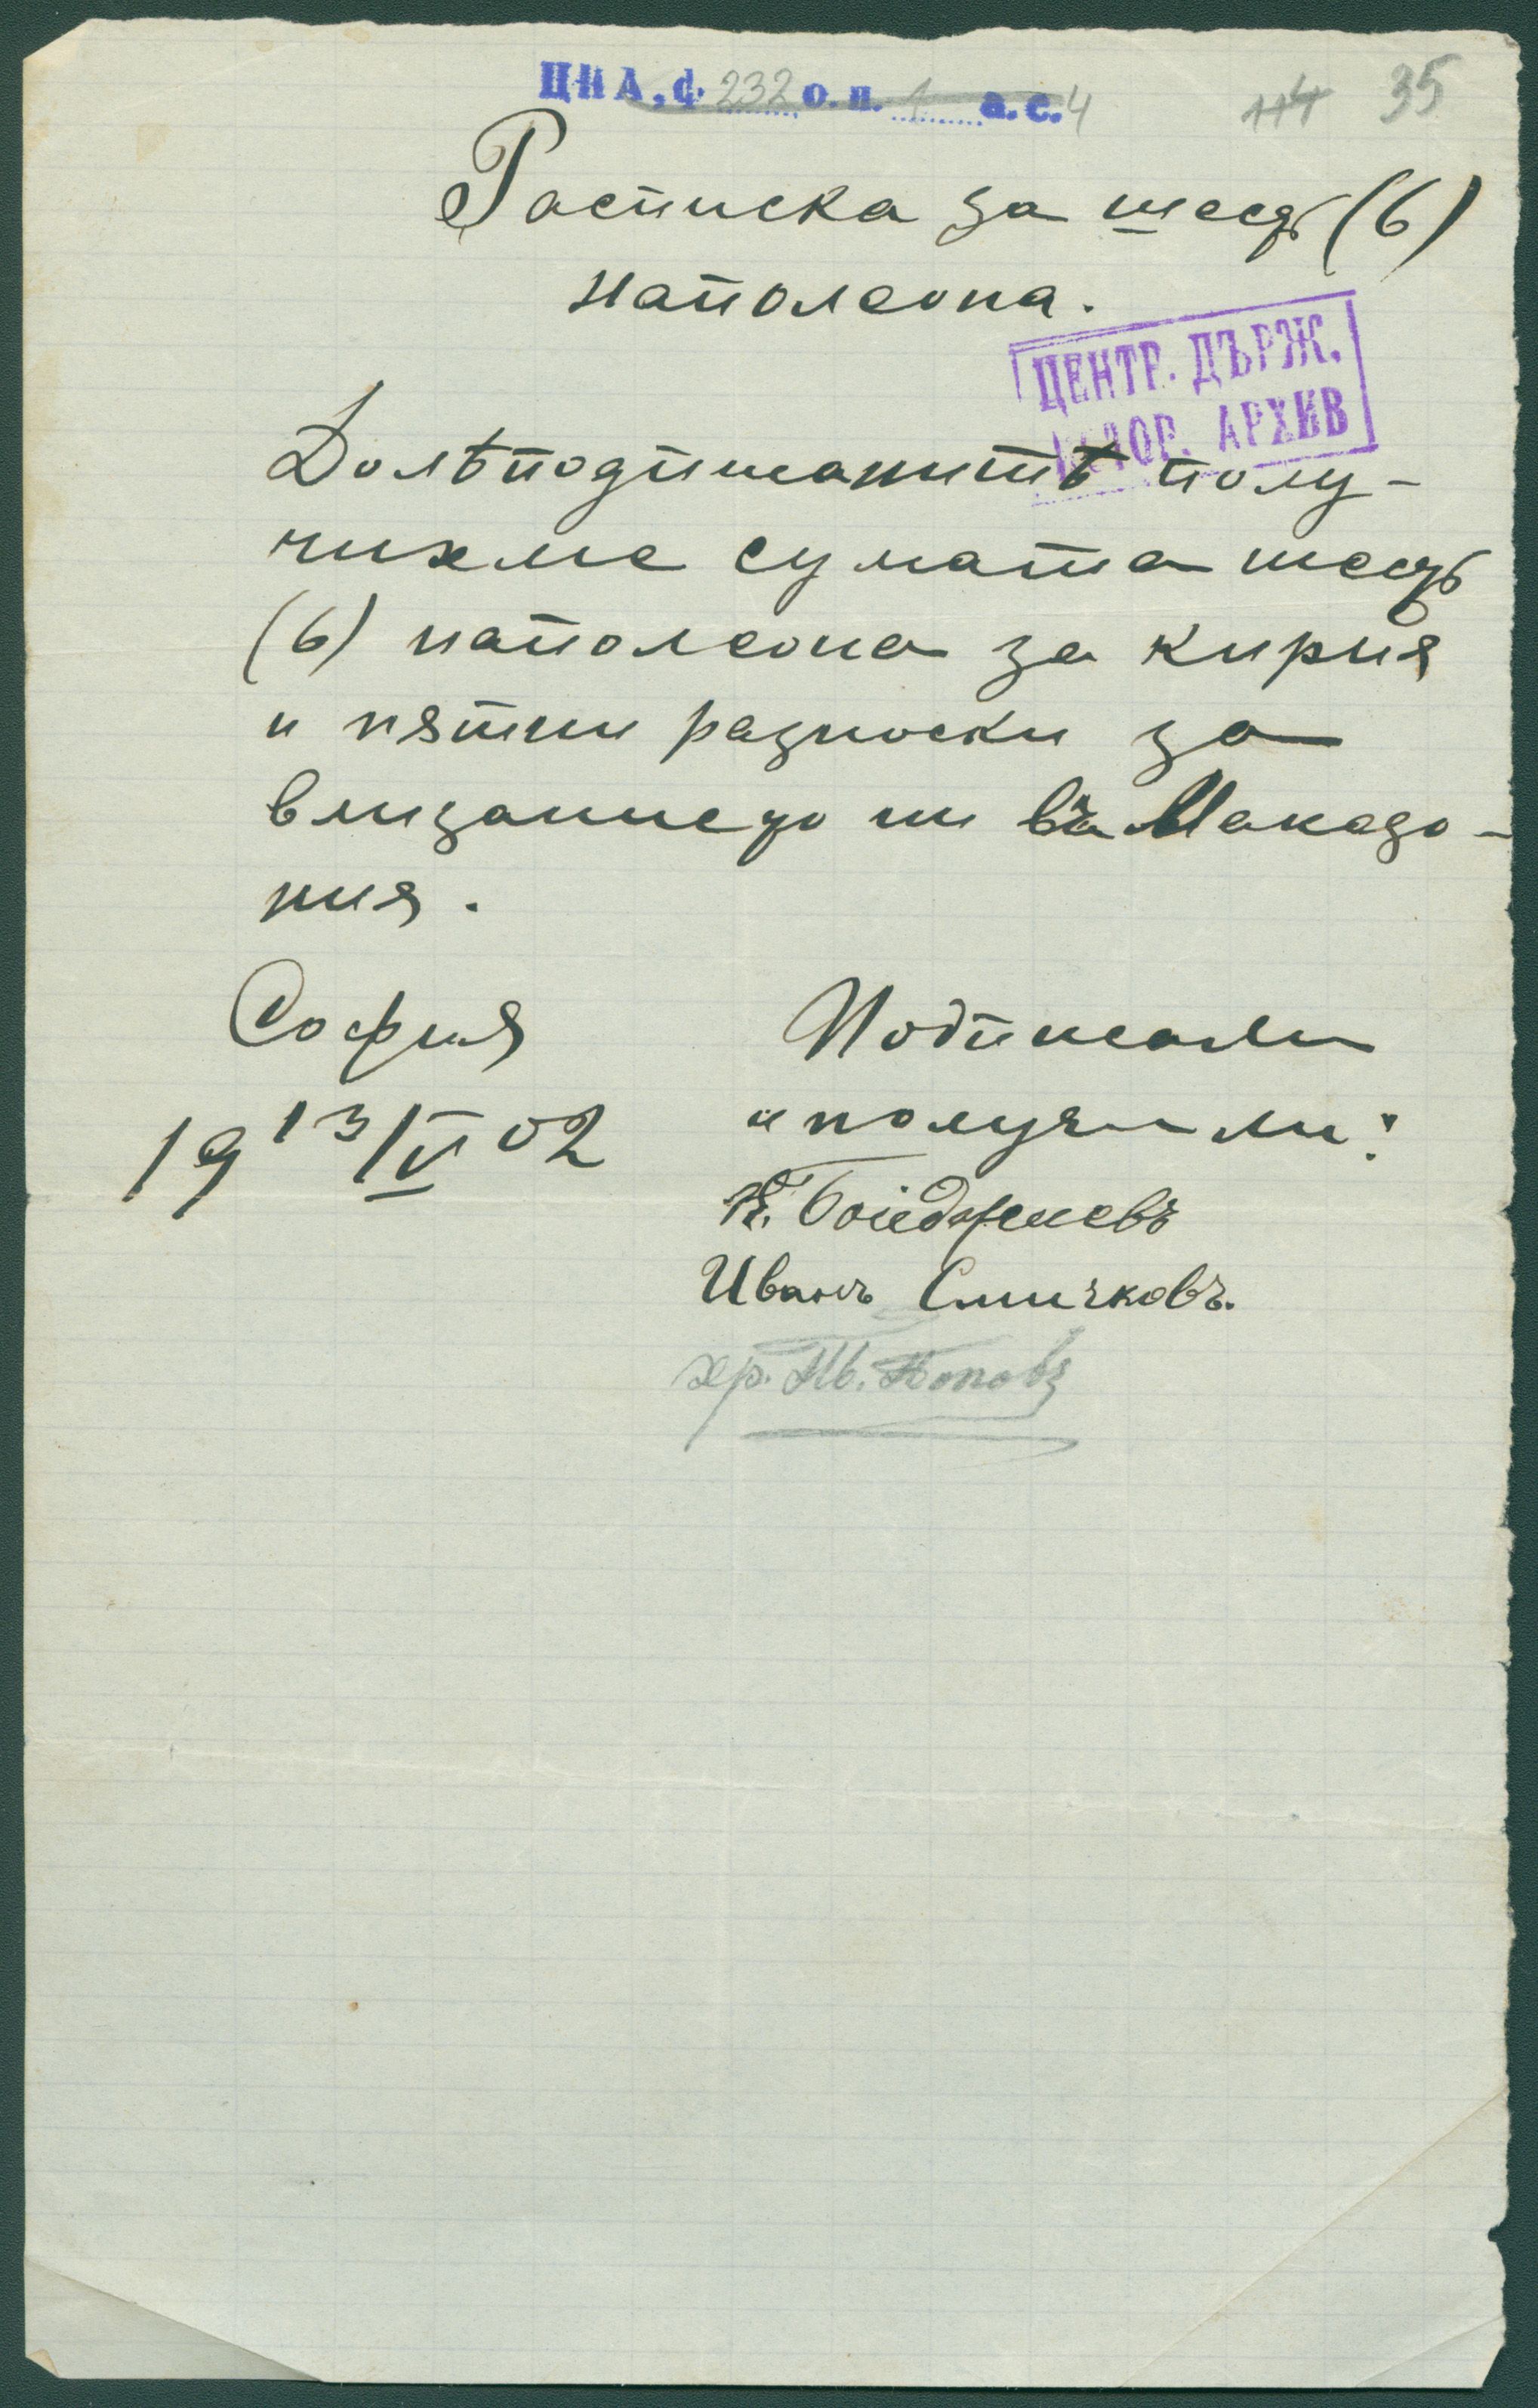 ЦИА, ф. 232 о. п. 1 а. е. 4
114 35
Расписка за шесдь (6)
наполеона.
ЦЕНТР. ДЪРЖ.
ИСТОР. АРХИВ
Долѣподписанитѣ полу-
чихме сумата шесдь
(6) наполеона за кирия
и пѫтни разноски за
влизаниедо ни въ Македо-
ния.
София
19 13/IV 02
Подписали
и получили:
Бояджиевъ
Иванъ Смичковъ.
Хр. Ив. Поповъ